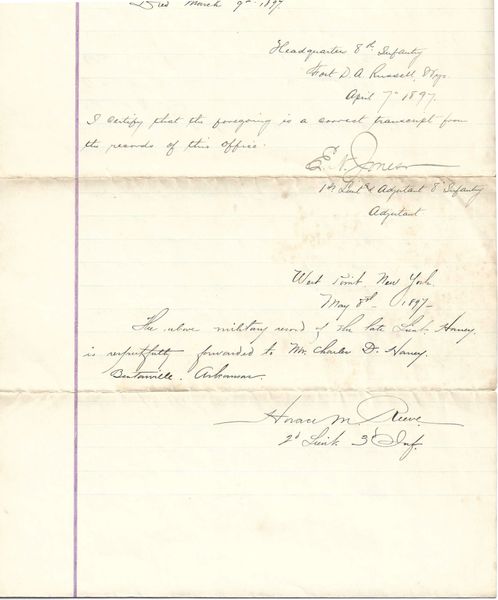 Died March 9th 1897
Headquarters 8th Infantry
Fort D. A. Russell, Wyo.
April 7th 1897.
I certify that the foregoing is a correct transcript from
the records of this office.
1st Lieut & Adjutant 8th Infantry
Adjutant
West Point New York.
May 8th 1897
The above military record of the late Lieut. Haney
is respectfully forwarded to Mr. Charles D. Haney.
Bentonville. Arkansas.
Horace M Reeve.
2d Lieut. 3d Inf.